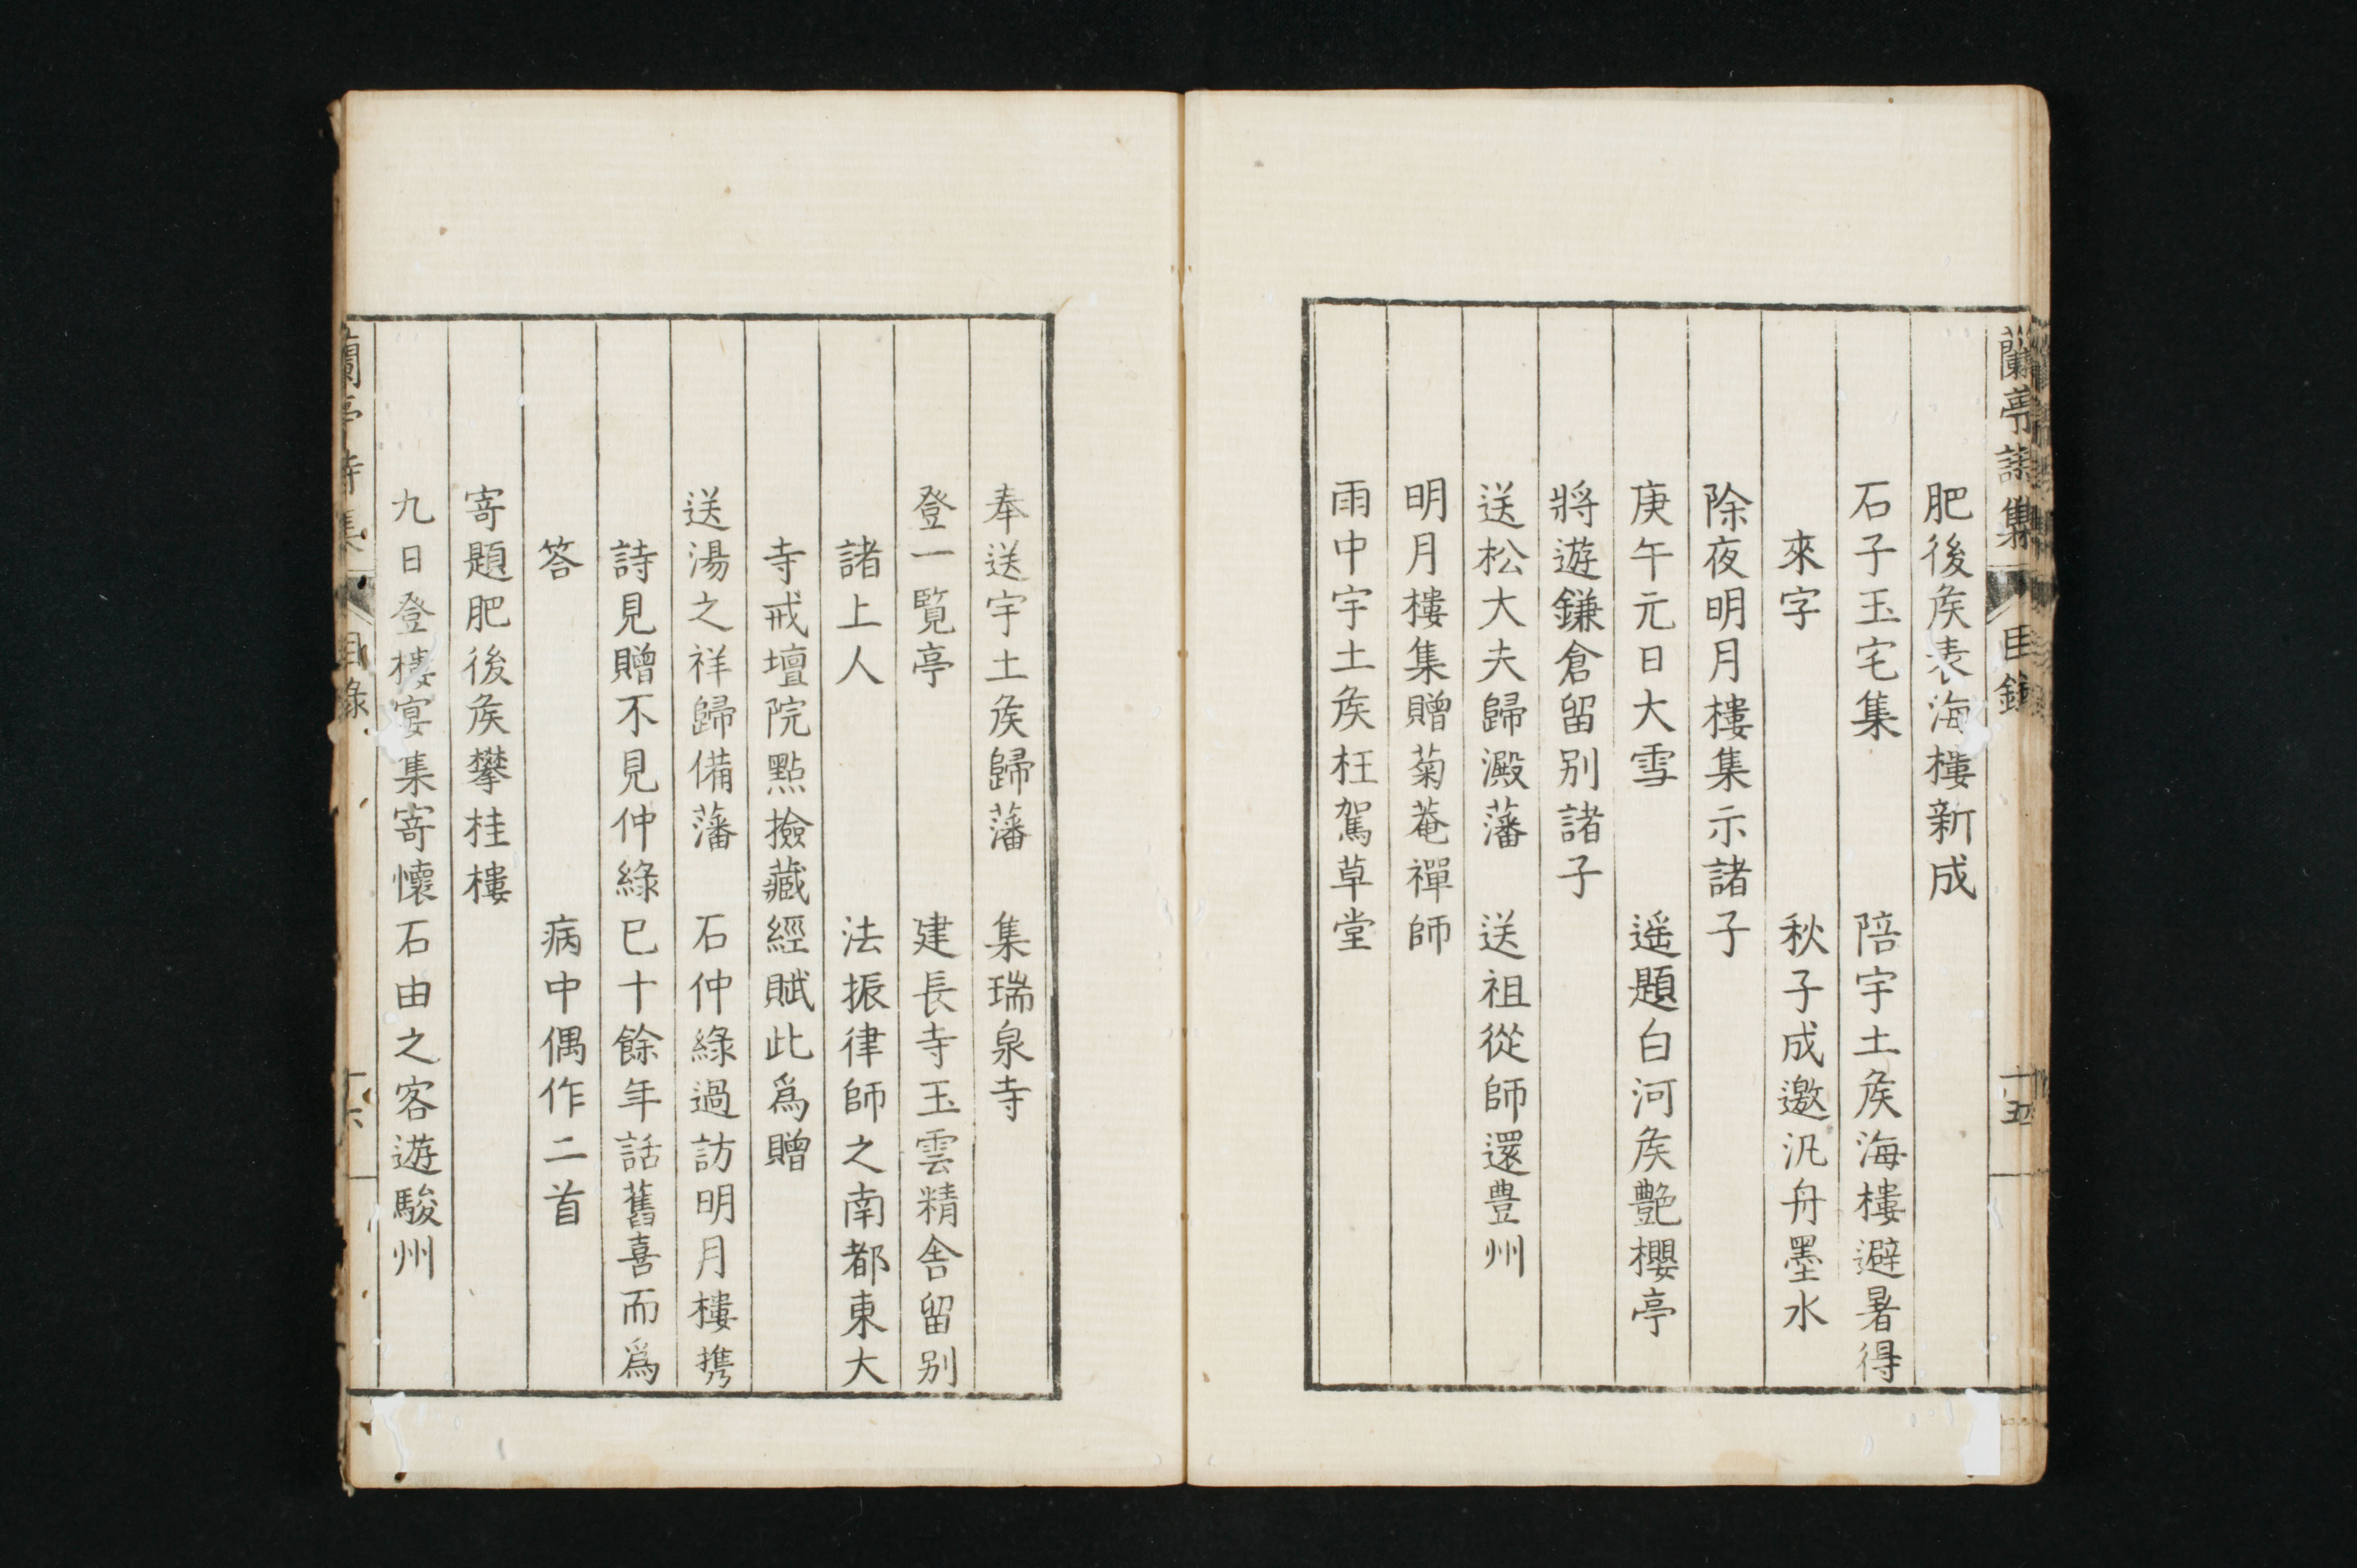 蘭亭詩集 目錄 十五
肥後矦表海樓新成
石子玉宅集 陪宇土矦海樓避暑得
來字 秋子成邀汎舟墨水
除夜明月樓集示諸子
庚午元日大雪 遥題白河矦艶櫻亭
將遊鎌倉留別諸子
送松大夫歸澱藩 送祖從師還豊州
明月樓集贈菊菴禪師
雨中宇土矦枉駕草堂
奉送宇土矦歸藩 集瑞泉寺
登一覧亭 建長寺玉雲精舎留別
諸上人 法振律師之南都東大
寺戒壇院點撿藏經賦此爲贈
送湯之祥歸備藩 石仲綠過訪明月樓携
詩見贈不見仲綠巳十餘年話舊喜而爲
答 病中偶作二首
寄題肥後矦攀桂樓
九日登樓宴集寄懷石由之客遊駿州
蘭亭詩集 目錄